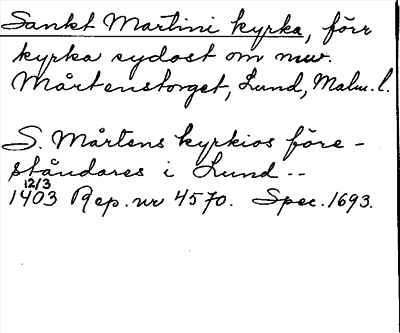 Sankt Martini kyrka, förr
kyrka sydost om nuv.
Mårtenstorget, Lund, Malm. l.
S. Mårtens kyrkios före-
ståndares i Lund --
12/3
1403 Rep. nr 4570. Spec. 1693.